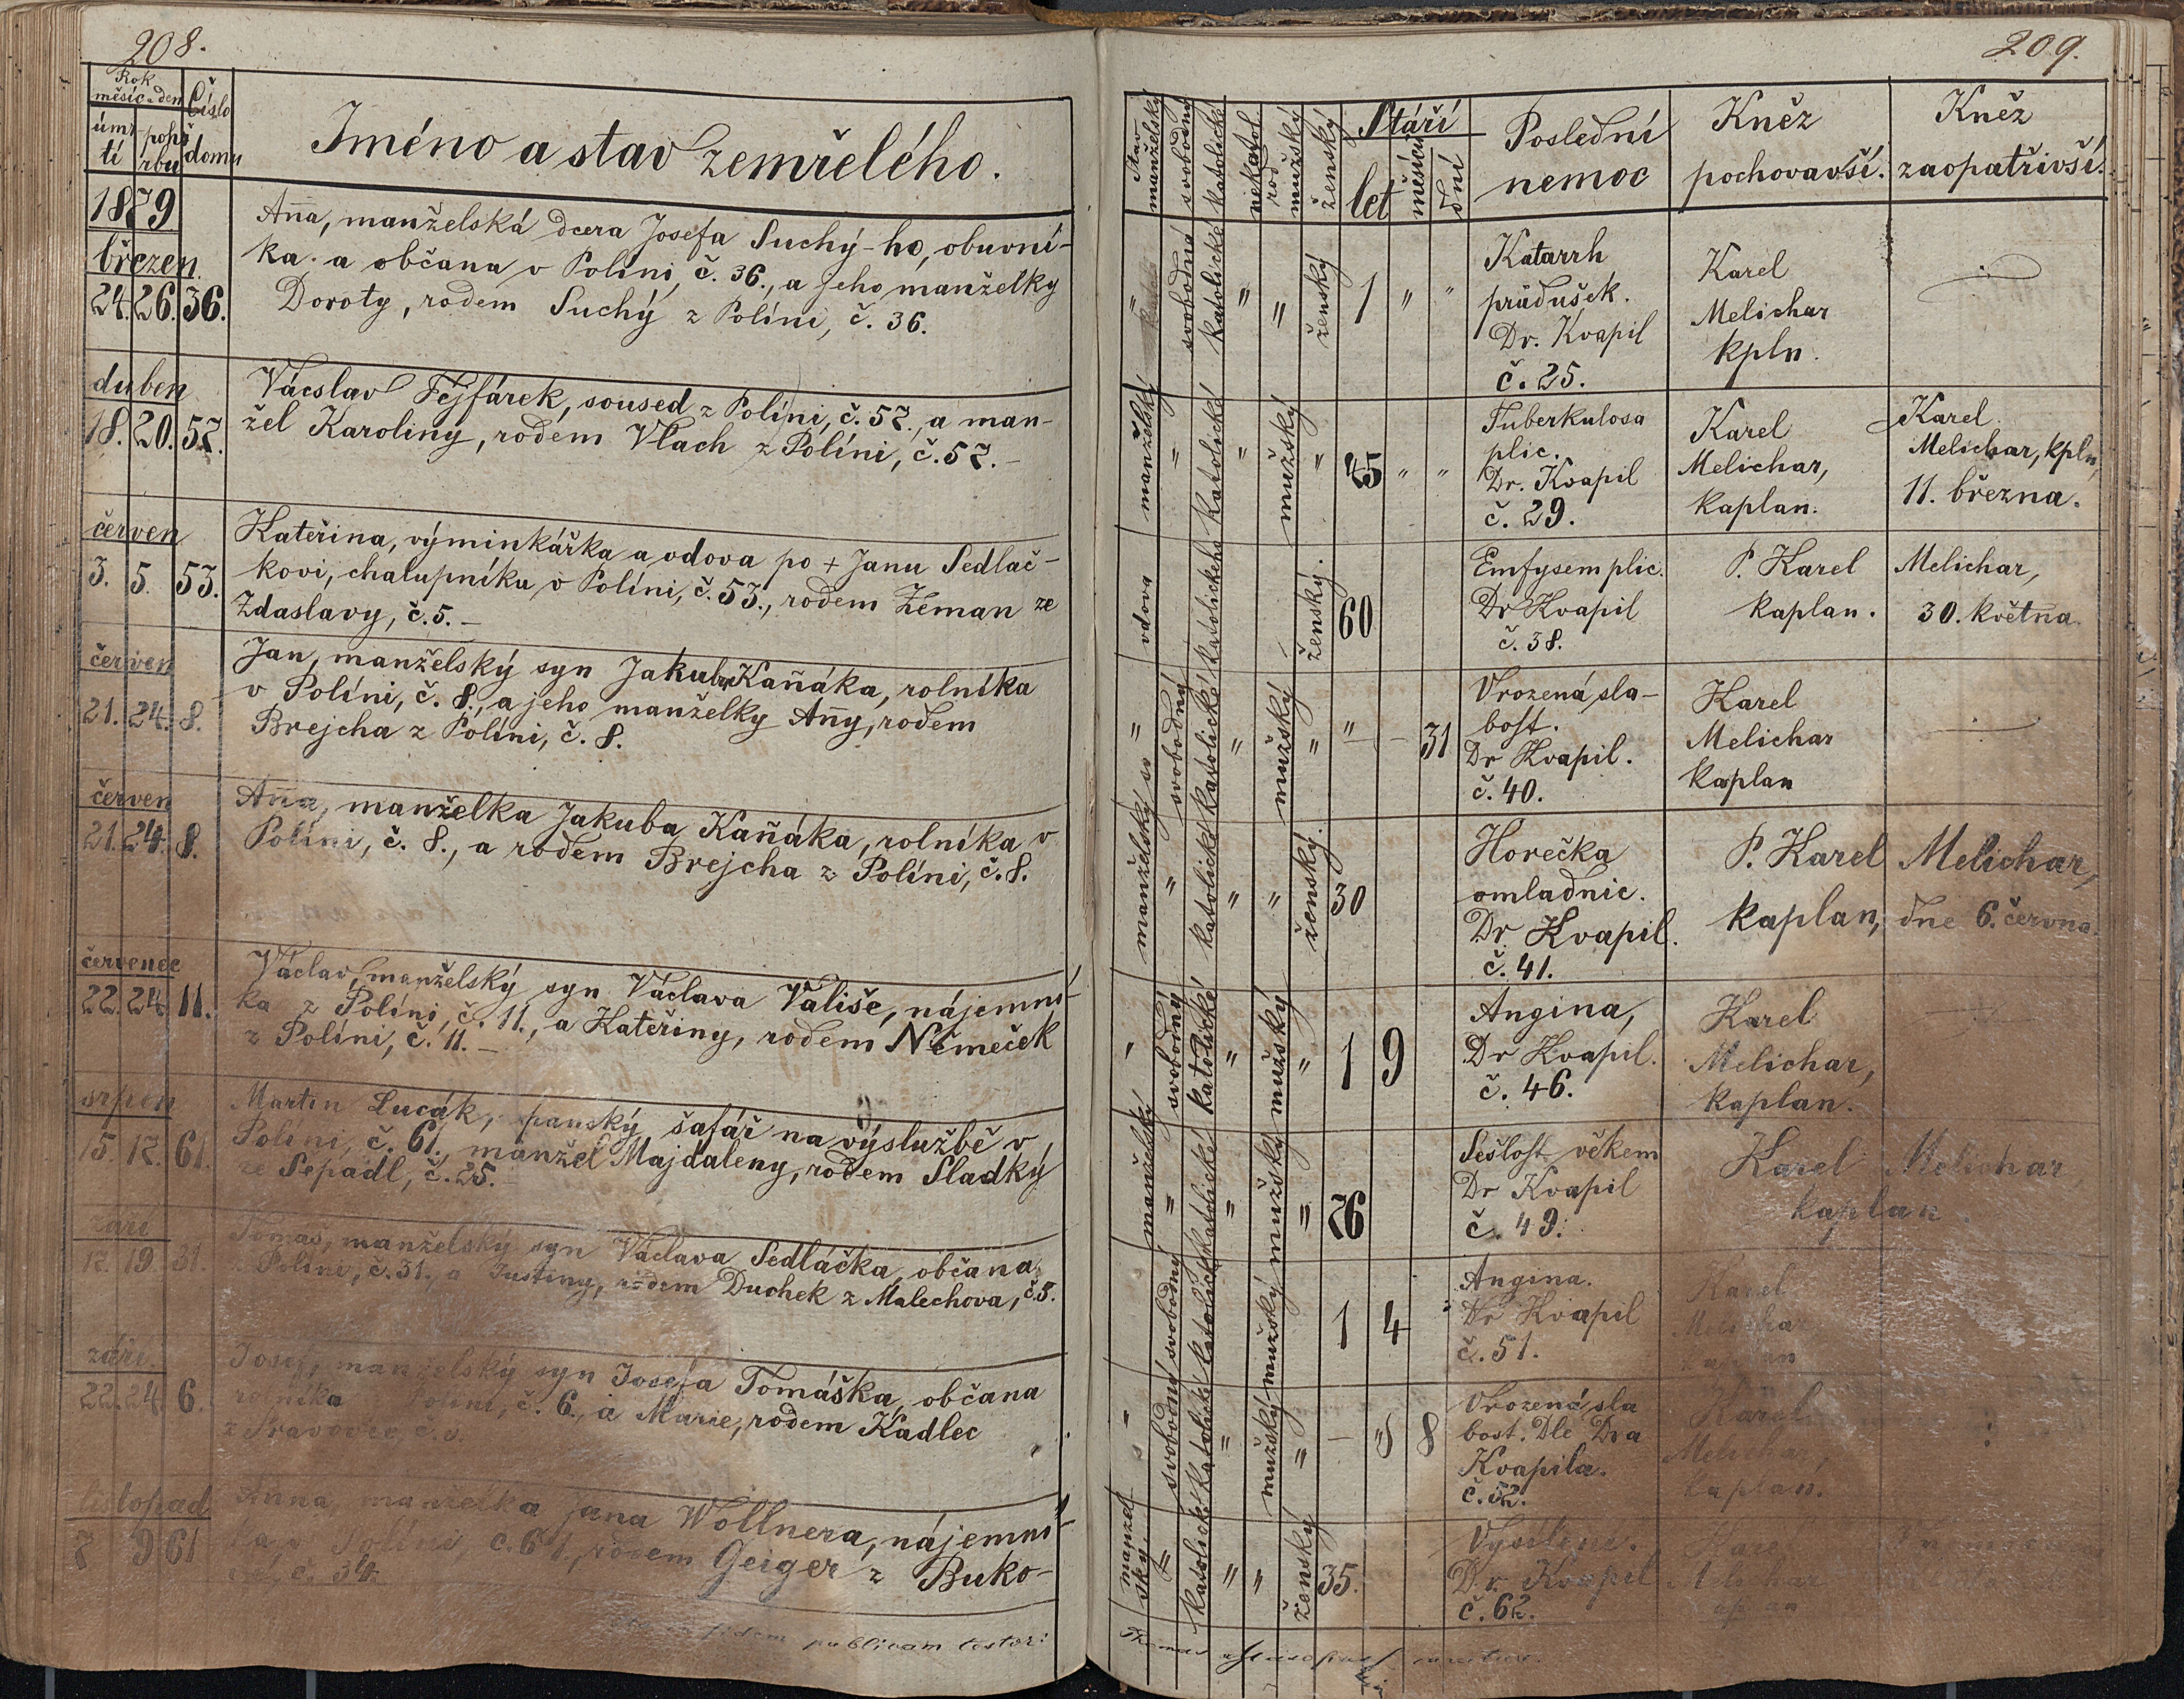 208.
Rok
měsíc a den
Číslo
úmr-
tí
pohř
rbu
domu
Jméno a stav zemřelého.
1879
březen.
24. 26. 36.
Aña, manželská dcera Josefa Suchý-ho, obuvní-
ka a občana v Políni, č. 36., a jeho manželky
Doroty, rodem Suchý z Políni, č. 36.
duben
18. 20. 57.
Vácslav Fejfárek, soused z Políni, č. 57., a man-
žel Karoliny, rodem Vlach z Políni, č. 57. –
červen
3. 5. 53.
Kateřina, výminkářka a vdova po + Janu Sedláč-
kovi, chalupníku v Políni, č. 53., rodem Zeman ze
Zdaslavy, č. 5. –
červen
21. 24. 8.
Jan, manželský syn Jakuba Kaňáka, rolníka
v Políni, č. 8., a jeho manželky Añy, rodem
Brejcha z Políni, č. 8.
červen
21. 24. 8.
Aña, manželka Jakuba Kaňáka, rolníka v
Políni, č. 8., a rodem Brejcha z Políni, č. 8.
červenec
22. 24. 11.
Václav, manželský syn Václava Vališe, nájemní-
ka z Políni, č. 11., a Kateřiny, rodem Němeček
z Políni, č. 11. –
srpen
15. 17. 61.
Martin Lucák, panský šafář na výslužbě v
Políni, č. 61., manžel Majdaleny, rodem Sladký
ze Sepadl, č. 25.
září
17. 19. 31.
Tomáš, manželský syn Václava Sedláčka, občana
Políni, č. 31., a Justiny, rodem Duchek z Malechova, č. 5.
září.
22. 24. 6.
Josef, manželský syn Josefa Tomáška, občana
rolníka Políni, č. 6., a Marie, rodem Kadlec
z
listopad
7 9 61
Anna, manželka Jana Wollnera, nájemní-
ka v Políni č. 61., rodem Geiger z Buko-
č. 34
fidem publicam testor:
209.
Stav
manželský
svobodný
katolické
nekatol
rod
mužský
ženský
Stáří
let
měsíců
dní
Poslední
nemoc
Kněz
pochovavší.
Kněz
zaopatřivší.
" svobodná katolické " " ženský 1 " "
Katarrh
průdušek.
Dr. Kvapil
č. 25.
Karel
Melichar
kpln.
manželský " katolické " mužský " 45 " "
Tuberkulosa
plic.
Dr. Kvapil
č. 29.
Karel
Melichar,
kaplan.
Karel
Melichar, kpln,
11. března.
vdova katolického ženský. 60
Emfysem plic.
Dr Kvapil
č. 38.
P. Karel Melichar,
kaplan. 30. května.
" svobodný katolické " mužský " " – – 31
Vrozená sla-
bost.
Dr Kvapil.
č. 40.
Karel
Melichar
kaplan
manželský " katolické " " ženský. 30
Horečka
omladnic.
Dr Kvapil.
č. 41.
P. Karel Melichar,
kaplan, dne 6. června.
" svobodný katolické " mužský " 1 9
Angina,
Dr Kvapil.
č. 46.
Karel
Melichar,
kaplan.
manželský " katolické " mužský " 76
Sešlost věkem
Dr Kvapil
č. 49.
Karel Melichar
kaplan
svobodný katolické mužský 1 4
Angina.
Dr Kvapil
č. 51.
Karel
Melichar
kaplan
svobodný katolické " mužský " – 8
Vrozená sla
bost. Dle Dra
Kvapila.
č. 52.
Karel
Melichar,
kaplan.
manžel
ský " katolické " " ženský 35.
Vysílení.
Dr. Kvapil
č. 62.
Karel
Melichar
Thomas